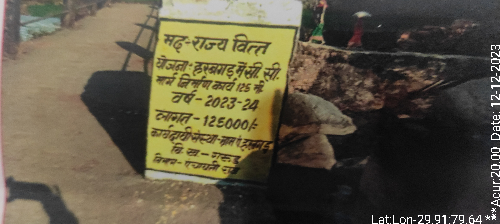 मद-राज्य वित्त
योजना- हरबगड़ में सी. सी.
मार्ग निर्माण कार्य 125 मी.
वर्ष- 2023-24
लागत- 125000/-
कार्यदायी संस्था- ग्रा० पं०
वि. ख.- गरुड़
***Acur:20.00, Date:12-12-2023
LatLon-29.91:79.64***